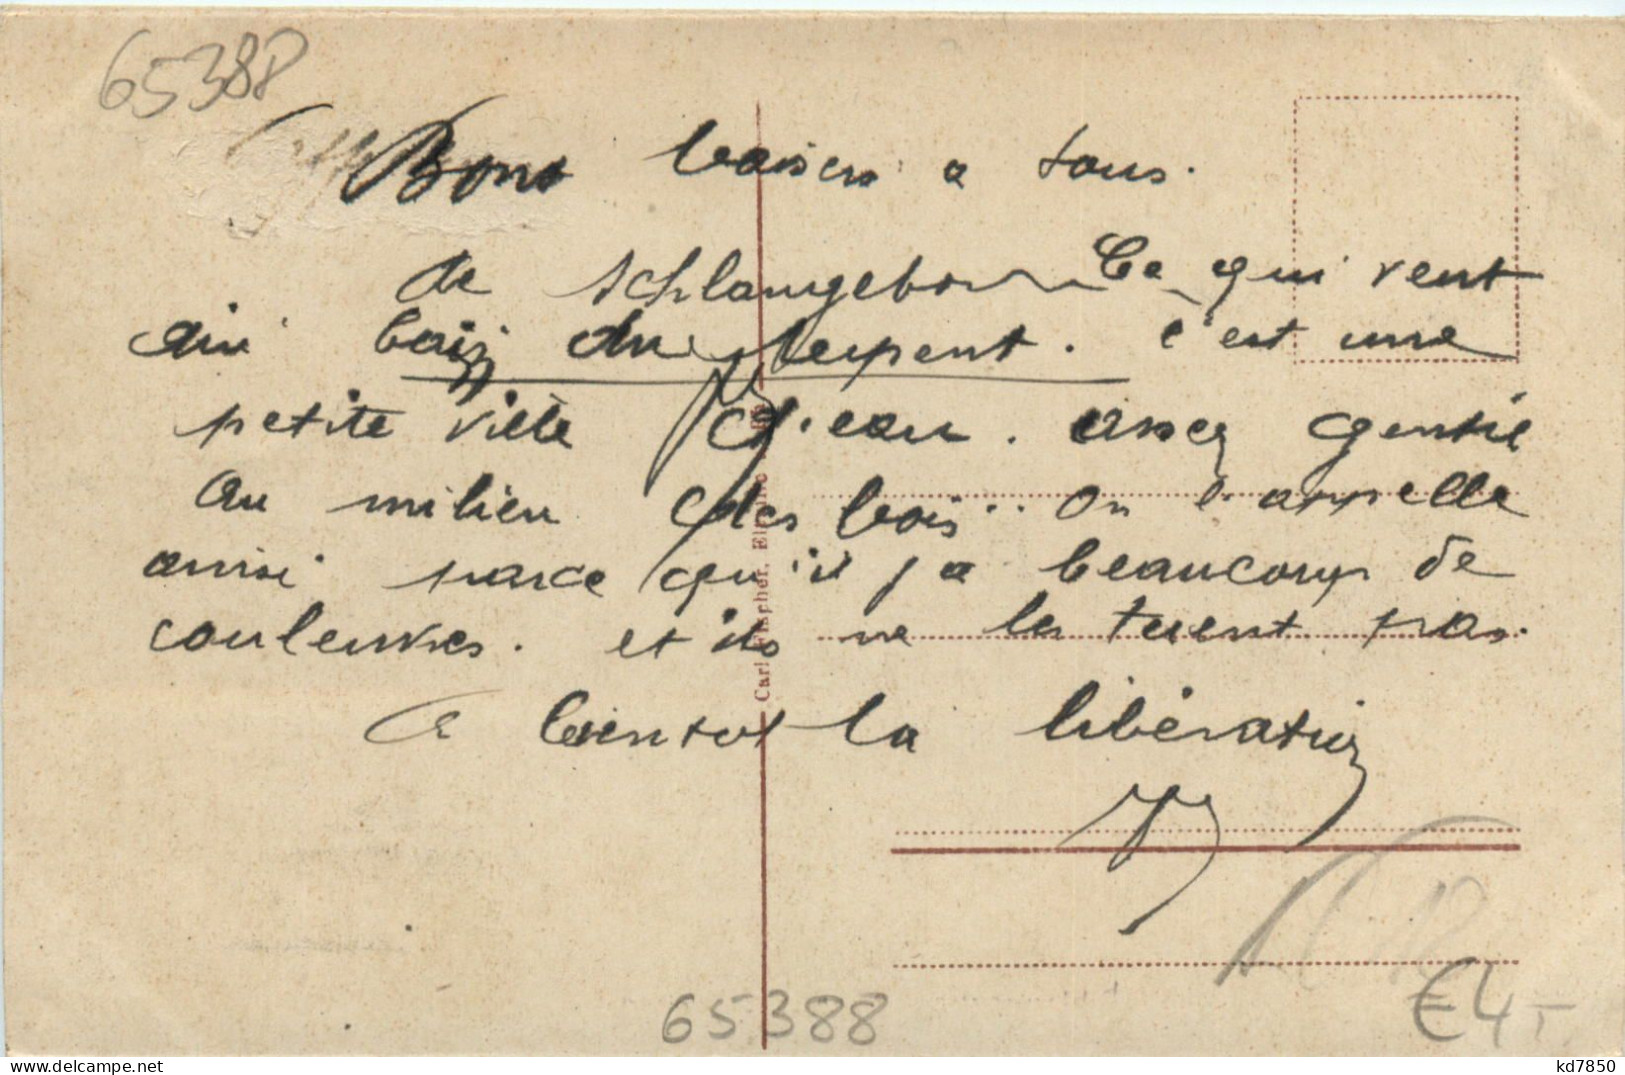 65388
Bons baisers a tous.
de Schlangebad Ce qui veut
dire bain du serpent. c'est une
petite ville d'eau. assez gentil
au milieu des bois.. On l'appelle
ainsi parce qu'il y a beaucoup de
couleuvres. et ils ne les tuent pas.
A bientot la libération
Carl Fischer,
65388
€4,-
kd7850